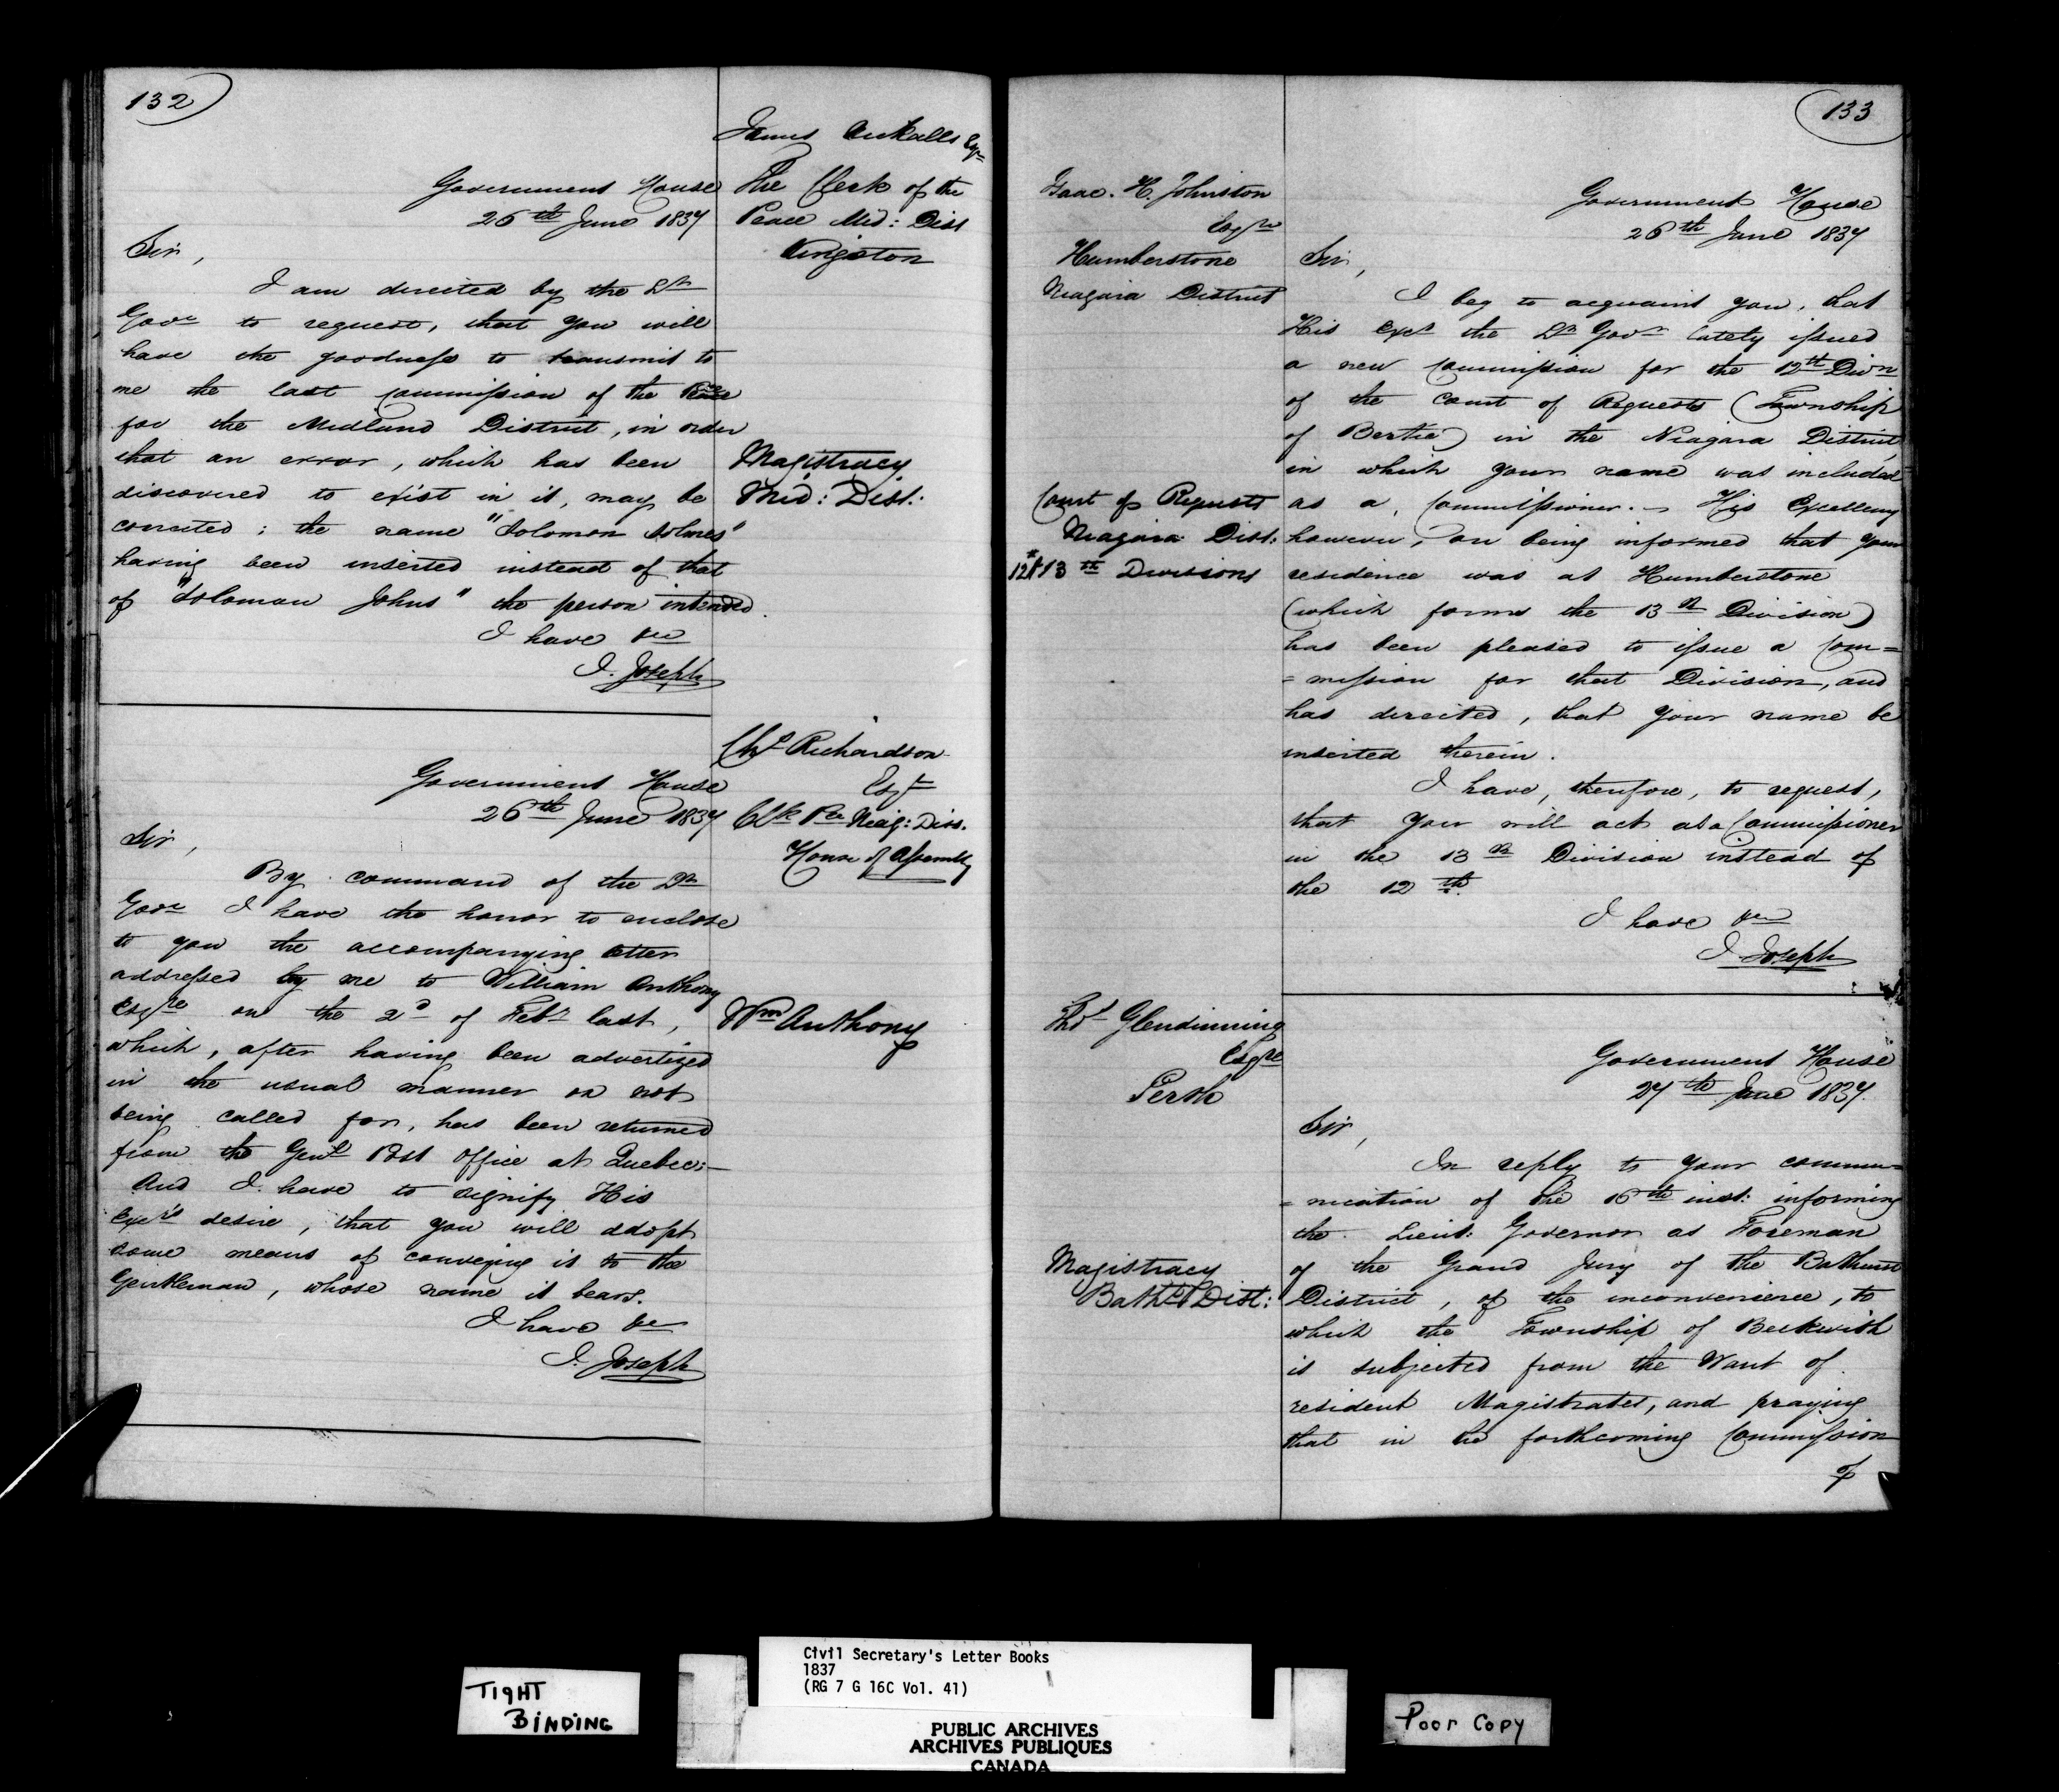 132
James Nickalls Esqre
The Clerk of the
Peace Mid: Dist
Kingston
Government House
26th June 1837
Sir,
I am directed by the Lt
Govr to request, that you will
have the goodness to transmit to
me the last Commission of the Peace
for the Midland District, in order
that an error, which has been
discovered to exist in it, may be
corrected; the name "Solomon Holmes"
having been inserted instead of that
of "Soloman Johns" the person intended.
I have &c
J. Joseph
Magistracy
Mid: Dist:
Chs Richardson
Esqr
Clk Pce Niag: Dist.
House of Assembly
Government House
26th June 1837
Sir,
By command of the Lt
Govr I have the honor to enclose
to you the accompanying letter
addressed by me to William Anthony
Esqre on the 2d of Feby last,
which, after having been advertized
in the usual manner as not
being called for, has been returned
from the Genl Post Office at Quebec:—
And I have to signify His
Excy's desire, that you will adopt
some means of conveying it to the
Gentleman, whose name it bears.
I have &c
J. Joseph
Wm Anthony
133
Isaac. H. Johnston
Esqre
Humberstone
Niagara District
Government House
26th June 1837
Sir,
I beg to acquaint you, that
His Excy the Lt Govr lately issued
a new Commission for the 12th Divn
of the Court of Requests (Township
of Bertie) in the Niagara District,
in which your name was included
as a Commissioner. — His Excellency
however, on being informed that your
residence was at Humberstone
(which forms the 13th Division)
has been pleased to issue a Com=
=mission for that Division, and
has directed, that your name be
inserted therein.
I have, therefore, to request,
that you will act as a Commissioner
in the 13th Division instead of
the 12th.
I have &c
J. Joseph
Court of Requests
Niagara Dist:
12th & 13th Divisions
Thos Glendinning
Esqre
Perth
Government House
27th June 1837.
Sir,
In reply to your commu=
=nication of the 16th inst: informing
the Lieut: Governor as Foreman
of the Grand Jury of the Bathurst
District, of the inconvenience, to
which the Township of Beckwith
is subjected from the Want of
resident Magistrates, and praying
that in the forthcoming Commission
of
Magistracy
Bathst Dist:
TIGHT
BINDING
Civil Secretary's Letter Books
1837
(RG 7 G 16C Vol. 41)
PUBLIC ARCHIVES
ARCHIVES PUBLIQUES
CANADA
Poor Copy